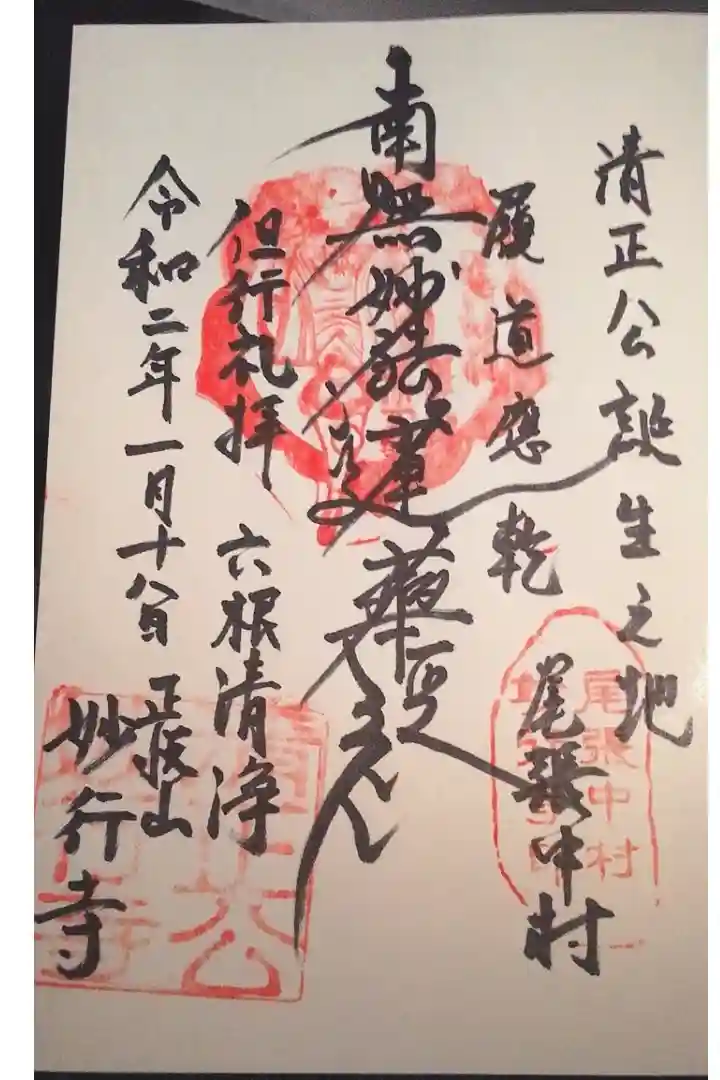 清正公誕生之地
履道應乾 尾張中村
南無妙法蓮華経
但行礼拝 六根清浄
令和二年一月十八日 正悦山
妙行寺
尾張中村
清正公